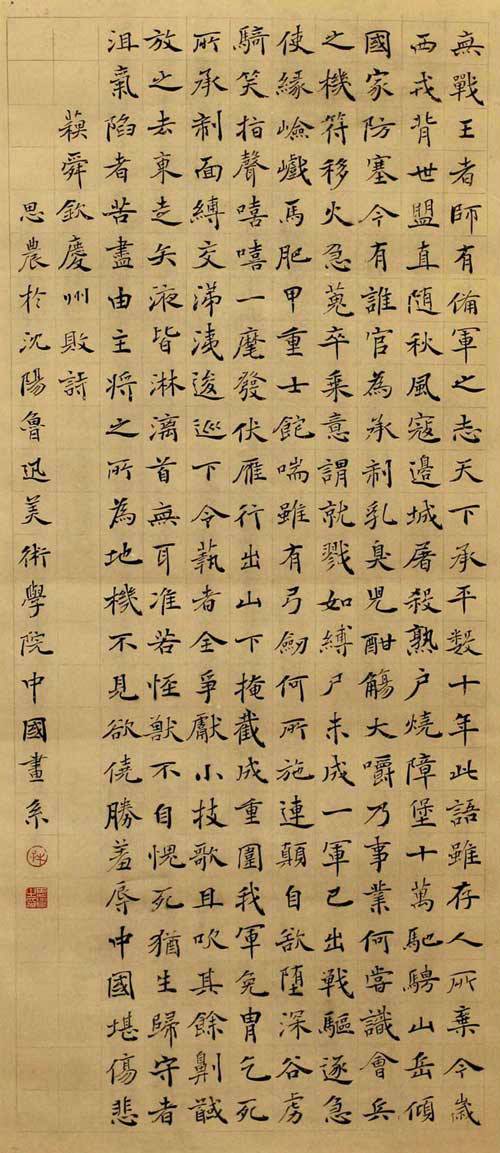 無戰王者師有備軍之志天下承平數十年此語雖存人所棄今歲
西戎背世盟直隨秋風寇邊城屠殺熟戶燒障堡十萬馳騁山岳傾
國家防塞今有誰官為承制乳臭兒酣觴大嚼乃事業何嘗識會兵
之機符移火急蒐卒乘意謂就戮如縛尸未成一軍已出戰驅逐急
使緣嶮巇馬肥甲重士飽喘雖有弓劒何所施連顛自欲墮深谷虜
騎笑指聲嘻嘻一麾發伏雁行出山下掩截成重圍我軍免冑乞死
所承制面縛交涕洟逡巡下令藝者全爭獻小技歌且吹其餘劓馘
放之去東走矢液皆淋漓首無耳准若怪獸不自愧死猶生歸守者
沮氣陷者苦盡由主將之所為地機不見欲僥勝羞辱中國堪傷悲
蘓舜欽慶州敗詩
思農於沈陽魯迅美術學院中國畫系